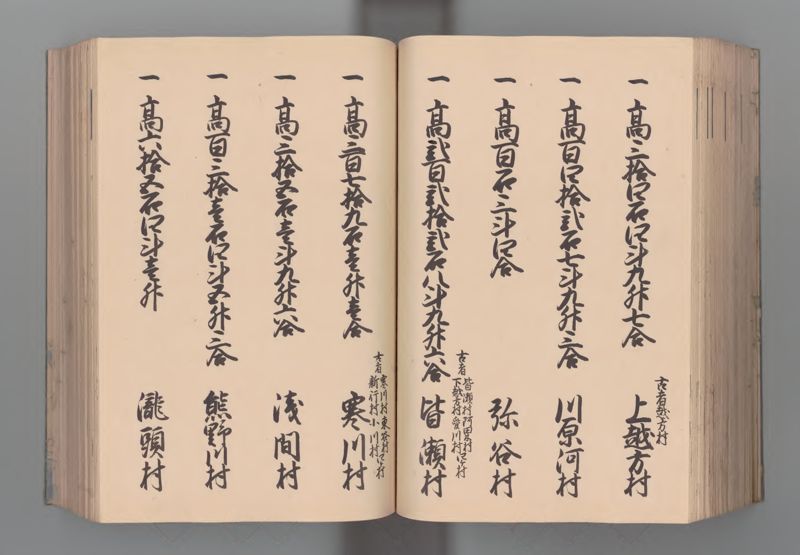 一 高三拾四石四斗九升七合
古者越方村
上越方村
一 高百四拾弐石七斗九升三合
川原河村
一 高百石三斗四合
弥谷村
一 高弐百弐拾弐石八斗九升六合
古者 皆瀬村
下越方村 愛川村
皆瀬村
一 高三百七拾九石壱升壱合
古者 寒川村 東谷村
新行村 小川村
寒川村
一 高三拾五石壱斗九升六合
浅間村
一 高百三拾壱石四斗五升三合
熊野川村
一 高六拾五石四斗壱升
瀧頭村